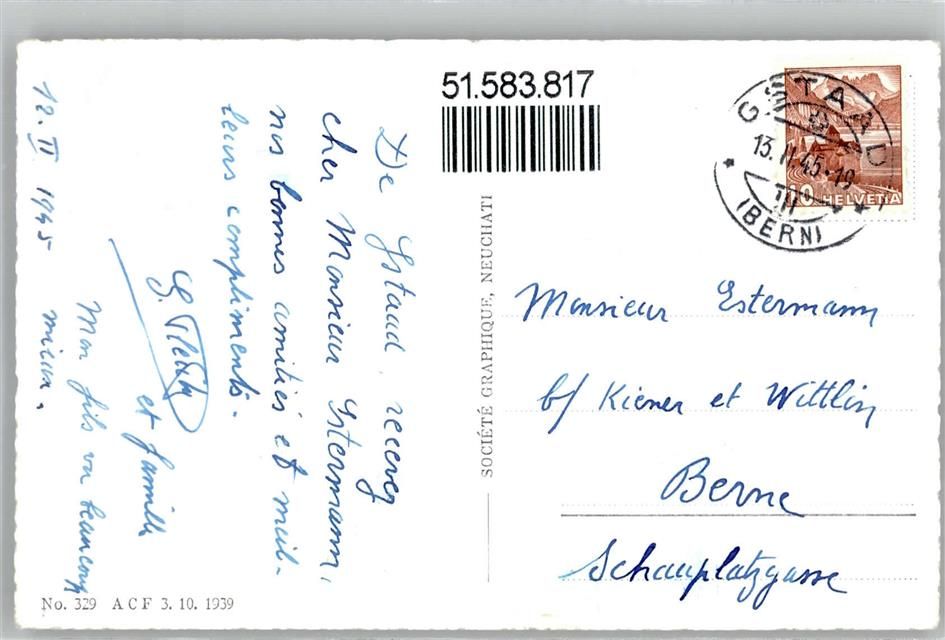 51.583.817
12. II 1945
De Gstaad, recevez
cher Monsieur Estermann,
nos bonnes amitiés et meil-
leurs compliments.
G.
et famille
Mon fils va beaucoup
mieux.
No. 329 A C F 3. 10. 1939
SOCIÉTÉ GRAPHIQUE, NEUCHATI
GSTAAD
13. II. 45-19
(BERN)
10 HELVETIA
Monsieur Estermann
b/ Kiener et Wittlin
Berne
Schauplatzgasse